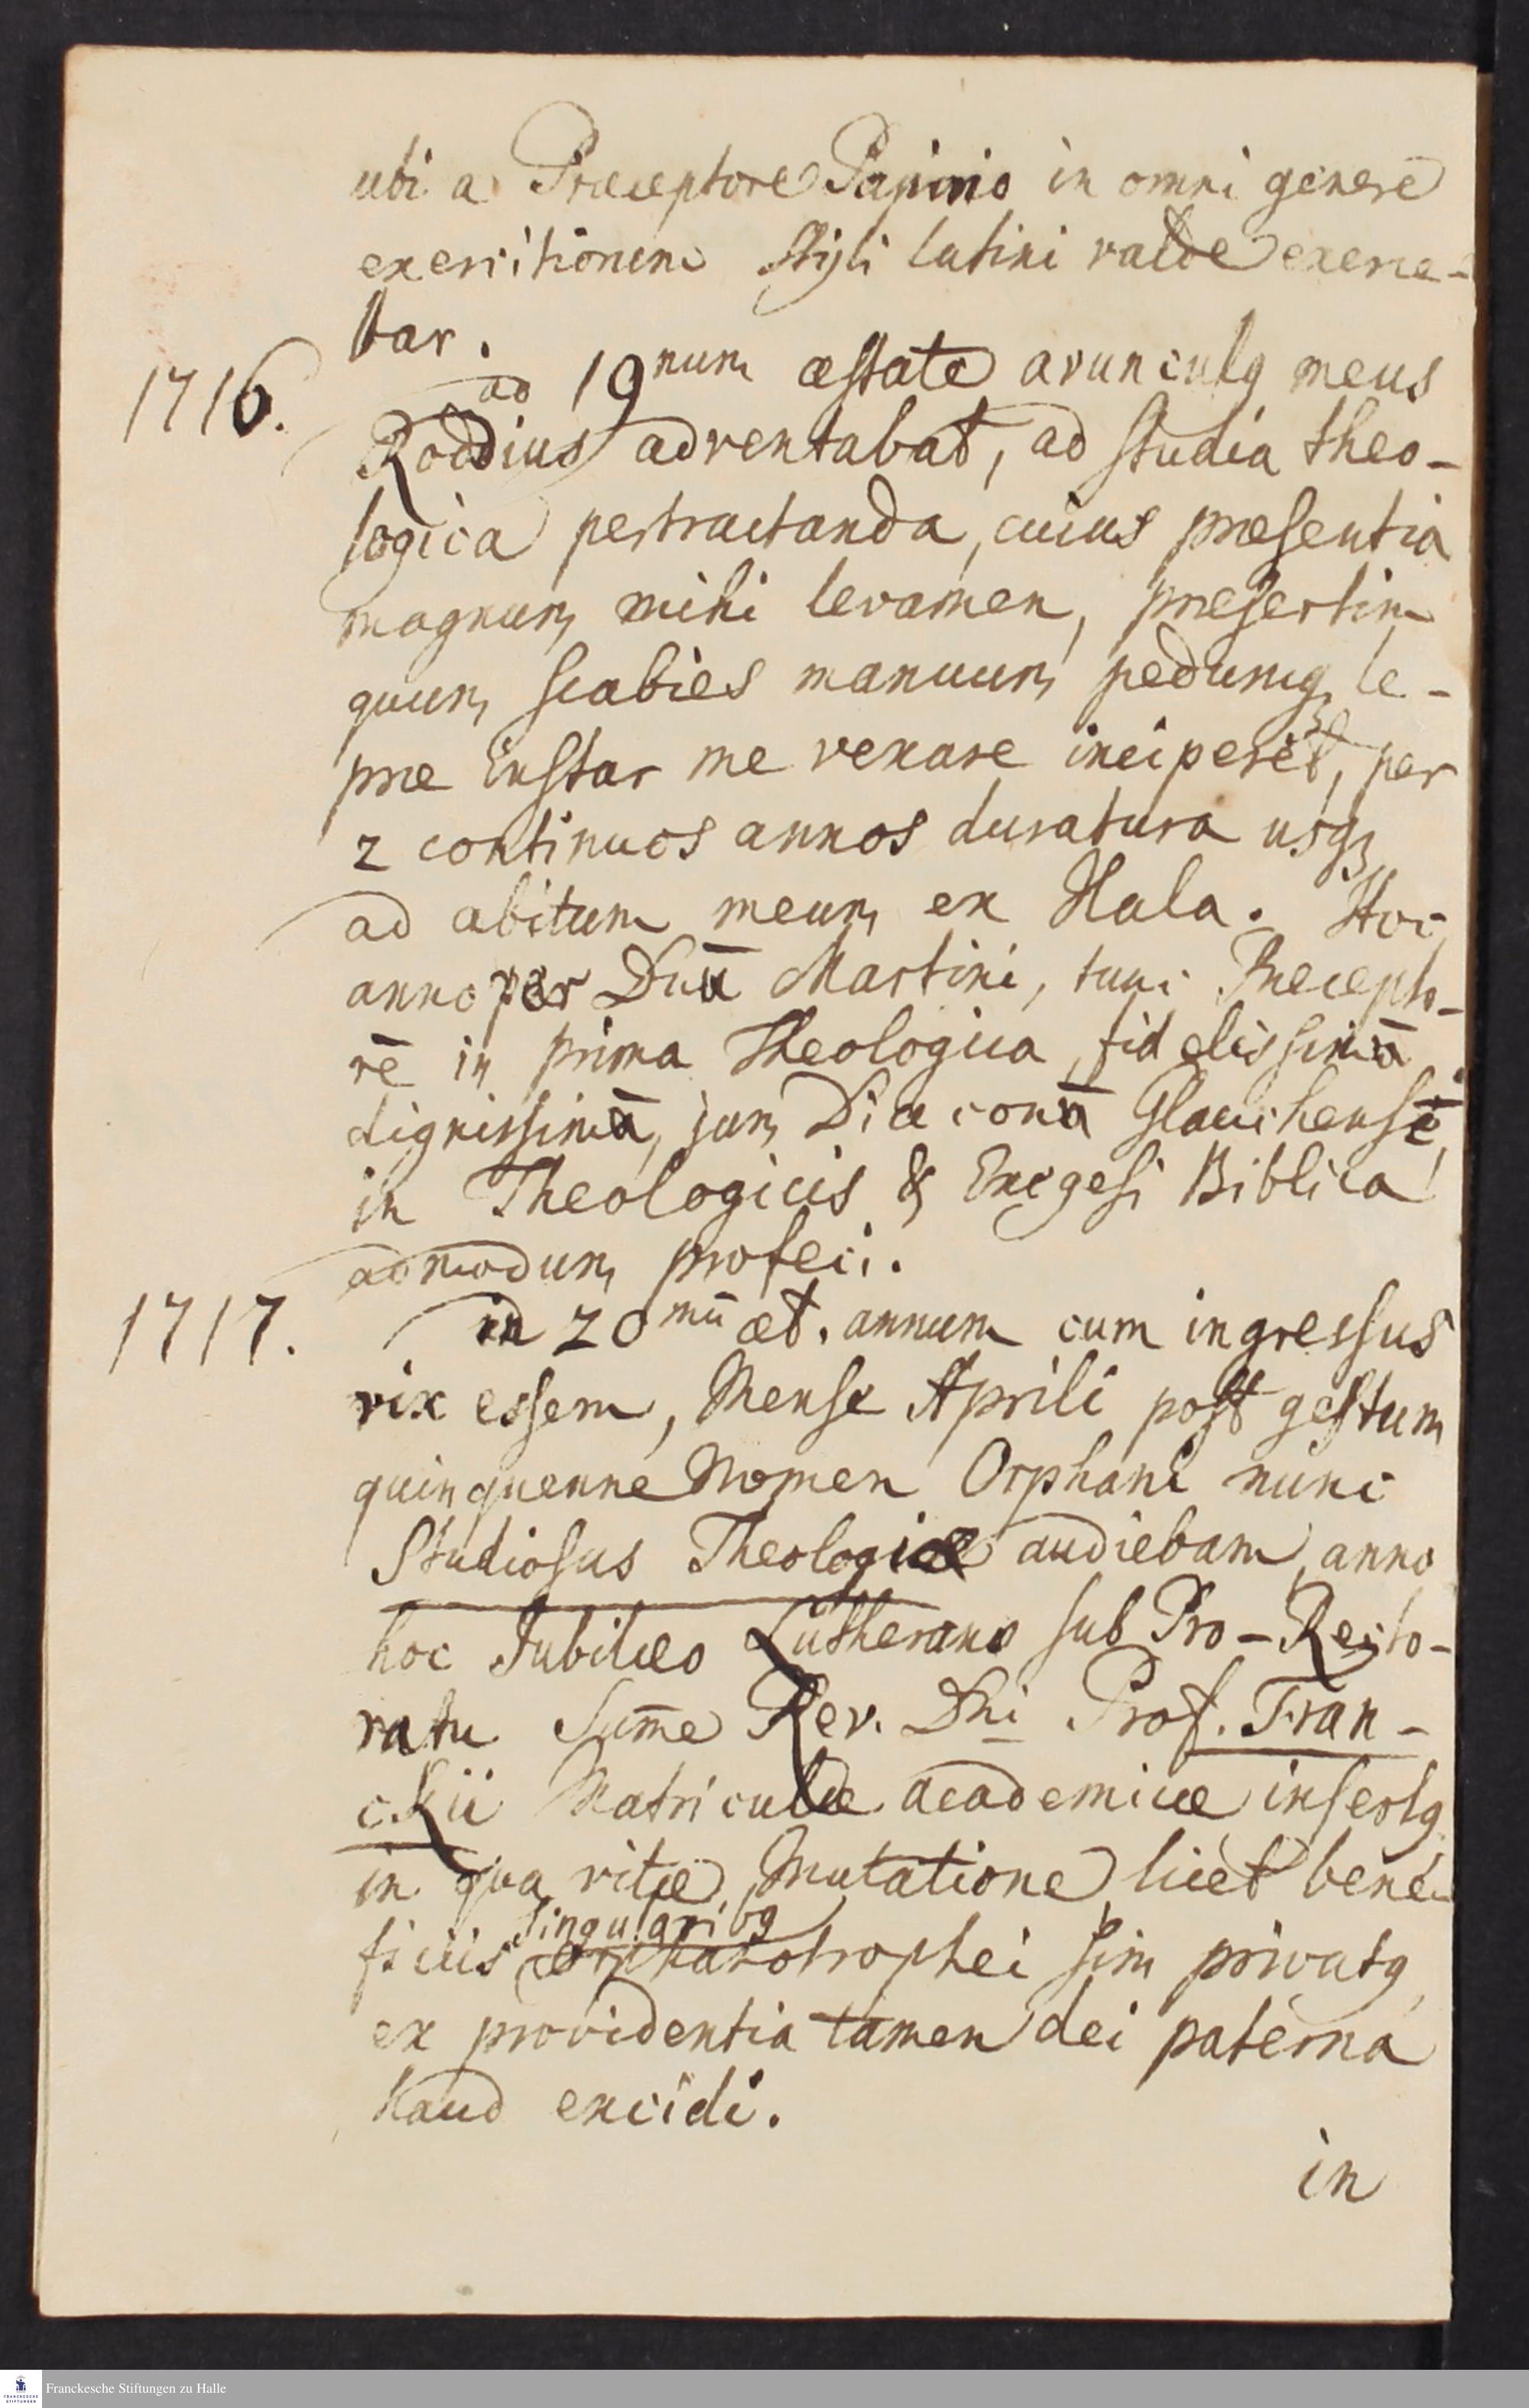 ubi a Præceptore Papinio in omni genere
exercitionem styli latini valde exerce-
bar.
1716. ad 19num æstate avunculq meus
Roddius adventabat, ad studia theo-
logica pertractanda, cuius præsentia
magnum mihi levamen, præsertim
quum scabies manuum pedumq, le-
præ instar me vexare inciperet, per
2 continuos annos duratura usq,
ad abitum meum ex Hala. Hoc
anno per Dnū Martini, tunc Præcepto-
rē in prima Theologica, fidelissimū
dignissimū, jam Diaconū Glauchensē,
in Theologicis & Exegesi Biblica
admodum profeci.
1717. in 20mū æt. annum cum ingressus
vix essem, Mense Aprili post gestum
quinquenne Nomen Orphani nunc
Studiosus Theologiæ audiebam, anno
hoc Jubilæo Lutherano sub Pro-Recto-
ratu Sum̄e Rev. Dni Prof. Fran-
ckii Matriculæ academicæ insertq
in qua vitæ Mutatione licet bene-
singularibq
ficiis orphanotrophei sim privatq,
ex providentia tamen dei paterna
haud excidi.
in
Franckesche Stiftungen zu Halle